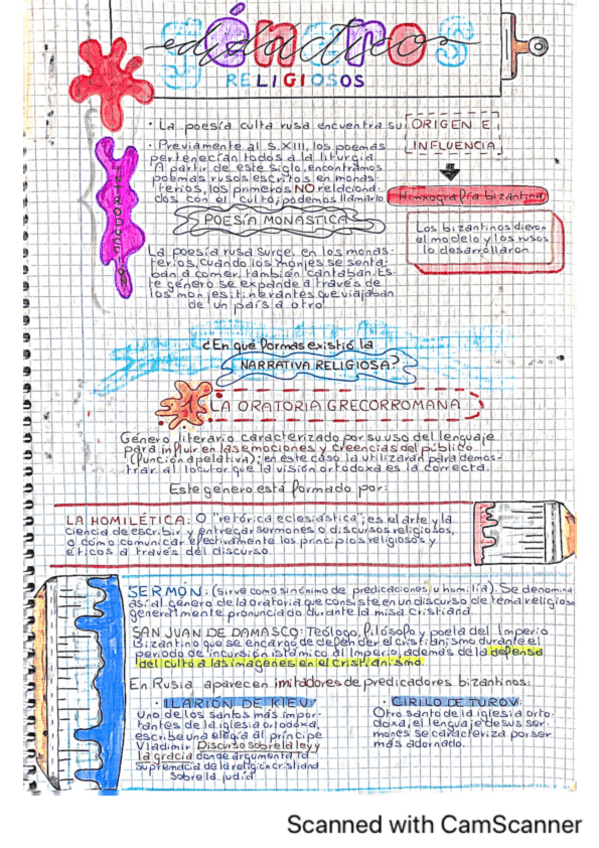 géneros
didáctico
RELIGIOSOS
· La poesía culta rusa encuentra su ORIGEN E
INFLUENCIA
· Previamente al S.XIII, los poemas
pertenecían todos a la liturgia
A partir de este siglo, encontramos
poemas rusos escritos en monas-
terios, los primeros NO relaciona-
dos con el culto, podemos llamarlo
POESÍA MONÁSTICA
Himnografía bizantina
Los bizantinos dieron
el modelo y los rusos
lo desarrollaron
INTRODUCCIÓN
La poesía rusa surge en los monas-
terios, cuando los monjes se senta-
ban a comer, también cantaban. Es-
te género se expande a través de
los monjes itinerantes que viajaban
de un país a otro
¿En qué formas existió la
NARRATIVA RELIGIOSA?
1 LA ORATORIA GRECORROMANA
Género literario caracterizado por su uso del lenguaje
para influir en las emociones y creencias del público
(función apelativa); en este caso la utilizarán para demos-
trar al locutor que la visión ortodoxa es la correcta.
Este género está formado por:
LA HOMILÉTICA: O "retórica eclesiástica"; es el arte y la
ciencia de escribir y entregar sermones o discursos religiosos,
o cómo comunicar efectivamente los principios religiosos y
éticos a través del discurso.
SERMÓN: (sirve como sinónimo de predicaciones u homilía). Se denomina
así al género de la oratoria que consiste en un discurso de tema religioso
generalmente pronunciado durante la misa cristiana.
SAN JUAN DE DAMASCO: Teólogo, filósofo y poeta del Imperio
Bizantino que se encargó de defender el cristianismo durante el
periodo de incursión islámico al Imperio, además de la defensa
del culto a las imágenes en el cristianismo
En Rusia aparecen imitadores de predicadores bizantinos:
· ILARIÓN DE KIEV:
Uno de los santos más impor-
tantes de la iglesia ortodoxa,
escribe una elegía al príncipe
Vladimir Discurso sobre la ley y
la gracia donde argumenta la
supremacía de la religión cristiana
sobre la judía
· CIRILO DE TUROV:
Otro santo de la iglesia orto-
doxa, el lenguaje de sus ser-
mones se caracteriza por ser
más adornado.
Scanned with CamScanner